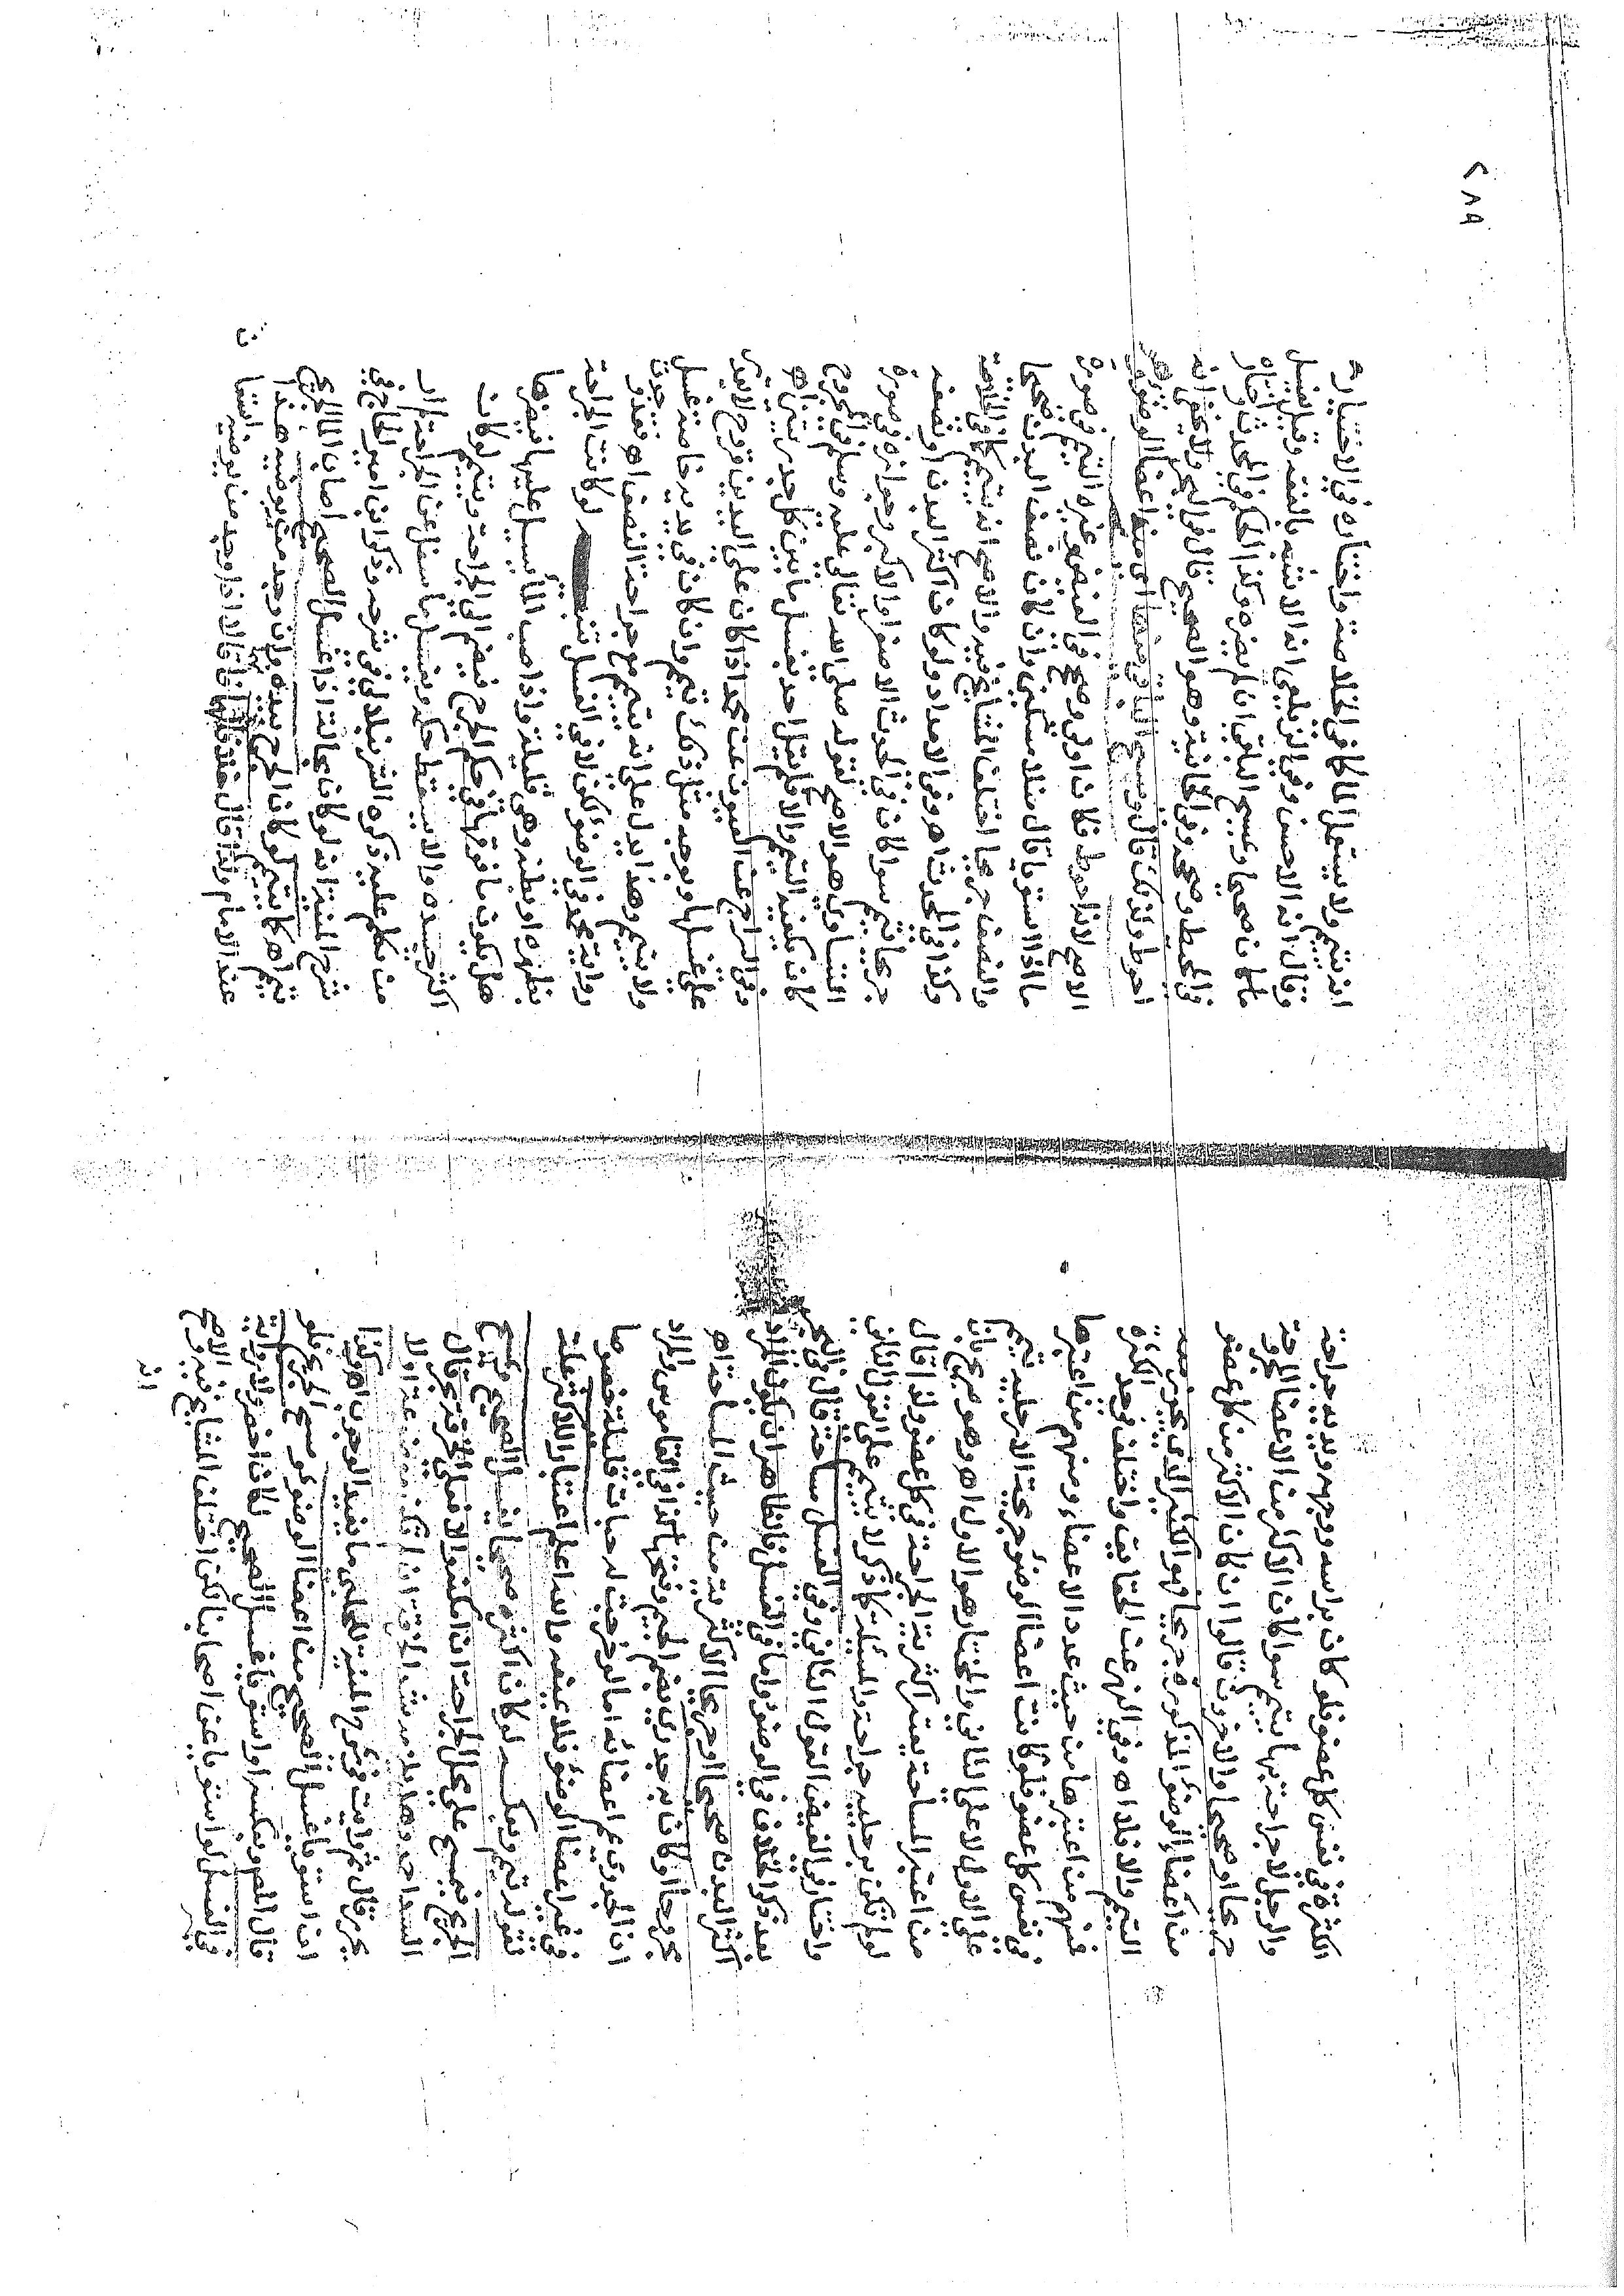 الكثرة في نفس كل عضو فلو كان براسه ووجهه ويديه جراحة
والرجل لا جراحة بها يتيمم سوا كان الاكثر من الاعضا الجريحة
جريحا او صحيحا والاخرون قالوا ان كان الاكثر من كل عضو
من اعضاء الوضوء المذكورة جريحا فهو الكثير الذي يجوز معه
التيمم والا فلا اه وفي النهر عن الحقايق واختلف في حد الكثرة
فمنهم من اعتبرها من حيث عدد الاعضاء ومنهم من اعتبرها
في نفس كل عضو فلو كانت اعضا الوضوء جريحة الا رجليه تيمم
على الاول لا على الثاني والمختار هو الاول اه وهو صريح بان
من اعتبر المساحة يعتبر اكثرية الجراحة في كل عضو ولذا قال
لو لم تكن برجليه جراحة والمسئلة كما ذكر لا يتيمم على القول الثاني
واختار في الفيض القول الثاني وفي الغسل مساحة قال في البحر
بعد ذكر الخلاف في الوضوء واما في الغسل فالظاهر ان يكون المراد
اكثر البدن صحيحا او جريحا الاكثرية من حيث المساحة اه
مجروحا او كان به جدري بضم الجيم وفتحها كذا في القاموس والمراد
ان الجدري عم اعضائه اما لو خرجت له حبات قليلة خصوصا
في غير اعضا الوضوء فلا والله اعلم اعتبارا للاكثر علة
لقوله تيمم وبعكسه لو كان اكثره صحيحا يغسل الصحيح ويمسح
الجريح فيمسح على محل الجراحة ان امكنه والا فعلى الخرقة بحر قال
السيد احمد وهل يلزمه شد الخرقة ان لم تكن موضوعة او لا
يحرر قال ثم رايت في شرح المنية للحلبي ما يفيد الوجوب اه وكذا
ان استويا غسل الصحيح من اعضا الوضوء ومسح الجريح فلو
قال المص وبعكسه او استويا غسل الصحيح لكان اخصر ولا رواية
في الغسل لو استويا عن اصحابنا لكن اختلف المشايخ فيه ورجح الاصح
انه
٢٨٩
انه يتيمم ولا يستعمل الماء كما في الخلاصة واختاره في الاختيار
وقال انه الاحسن وفي الزيلعي انه الاشبه بالفقه وقيل يغسل
ما كان صحيحا ويمسح الباقي ان لم يضره وكذا الحكم في المحدث واختاره
في المحيط وصححه وفي الخانية وهو الصحيح قال في البحر ولا يخفى انه
احوط ولذا قال ومسح الباقي منها اي من اعضا الوضوء وهو
الاصح لانه احوط فكان اولى وصحح في الفيض وغيره التيمم في صورة
ما اذا استويا قال منلا مسكين وان كان نصف البدن صحيحا
والنصف جريحا اختلف المشايخ فيه والاصح انه يتيمم كما في الخلاصة
وكذا في المحدث اه وفي الامداد ولو كان اكثر البدن او نصفه
جريحا تيمم سوا كان في الحدث الاصغر او الاكبر وجوازه في صورة
التساوي هو الاصح لقوله صلى الله تعالى عليه وسلم في المجروح
كان يكفيه التيمم والا فلم يقل احد بغسل ما بين كل جدريتين اه
وفي السراج عن العيون عن محمد اذا كان على اليدين قروح لا يقدر
على غسلها وبوجهه مثل ذلك تيمم وان كان في يديه خاصة غسل
ولا يتيمم وهذا يدل على انه يتيمم مع جراحة النصف اه فقد وجدت
رواية محمد في الوضوء لكن لا في الغسل تتمه لو كانت الجراحة
بظهره او بطنه وهي قليلة واذا صب الماء يسيل عليها فيضرها
هل يكون ما فوقها في حكم الجرح فيضم الى الجراحة ويتيمم لو كانت
اكثر جسده والا يسقط حكمه ويغسل ما سفل عن الجراحة لم ار
من تكلم عليه ذكره الشرنبلالي في شرحه وذكر ابن امير الحاج في
شرح المنية انه لو كان بحالة اذا غسل الصحيح اصاب الماء الجريح
تيمم اه كما يتيمم لو كان الجرح بيده وان وجد من يوضيه هذا
عند الامام ولذا قال خلافا لهما قالا اذا وجد من يوضيه